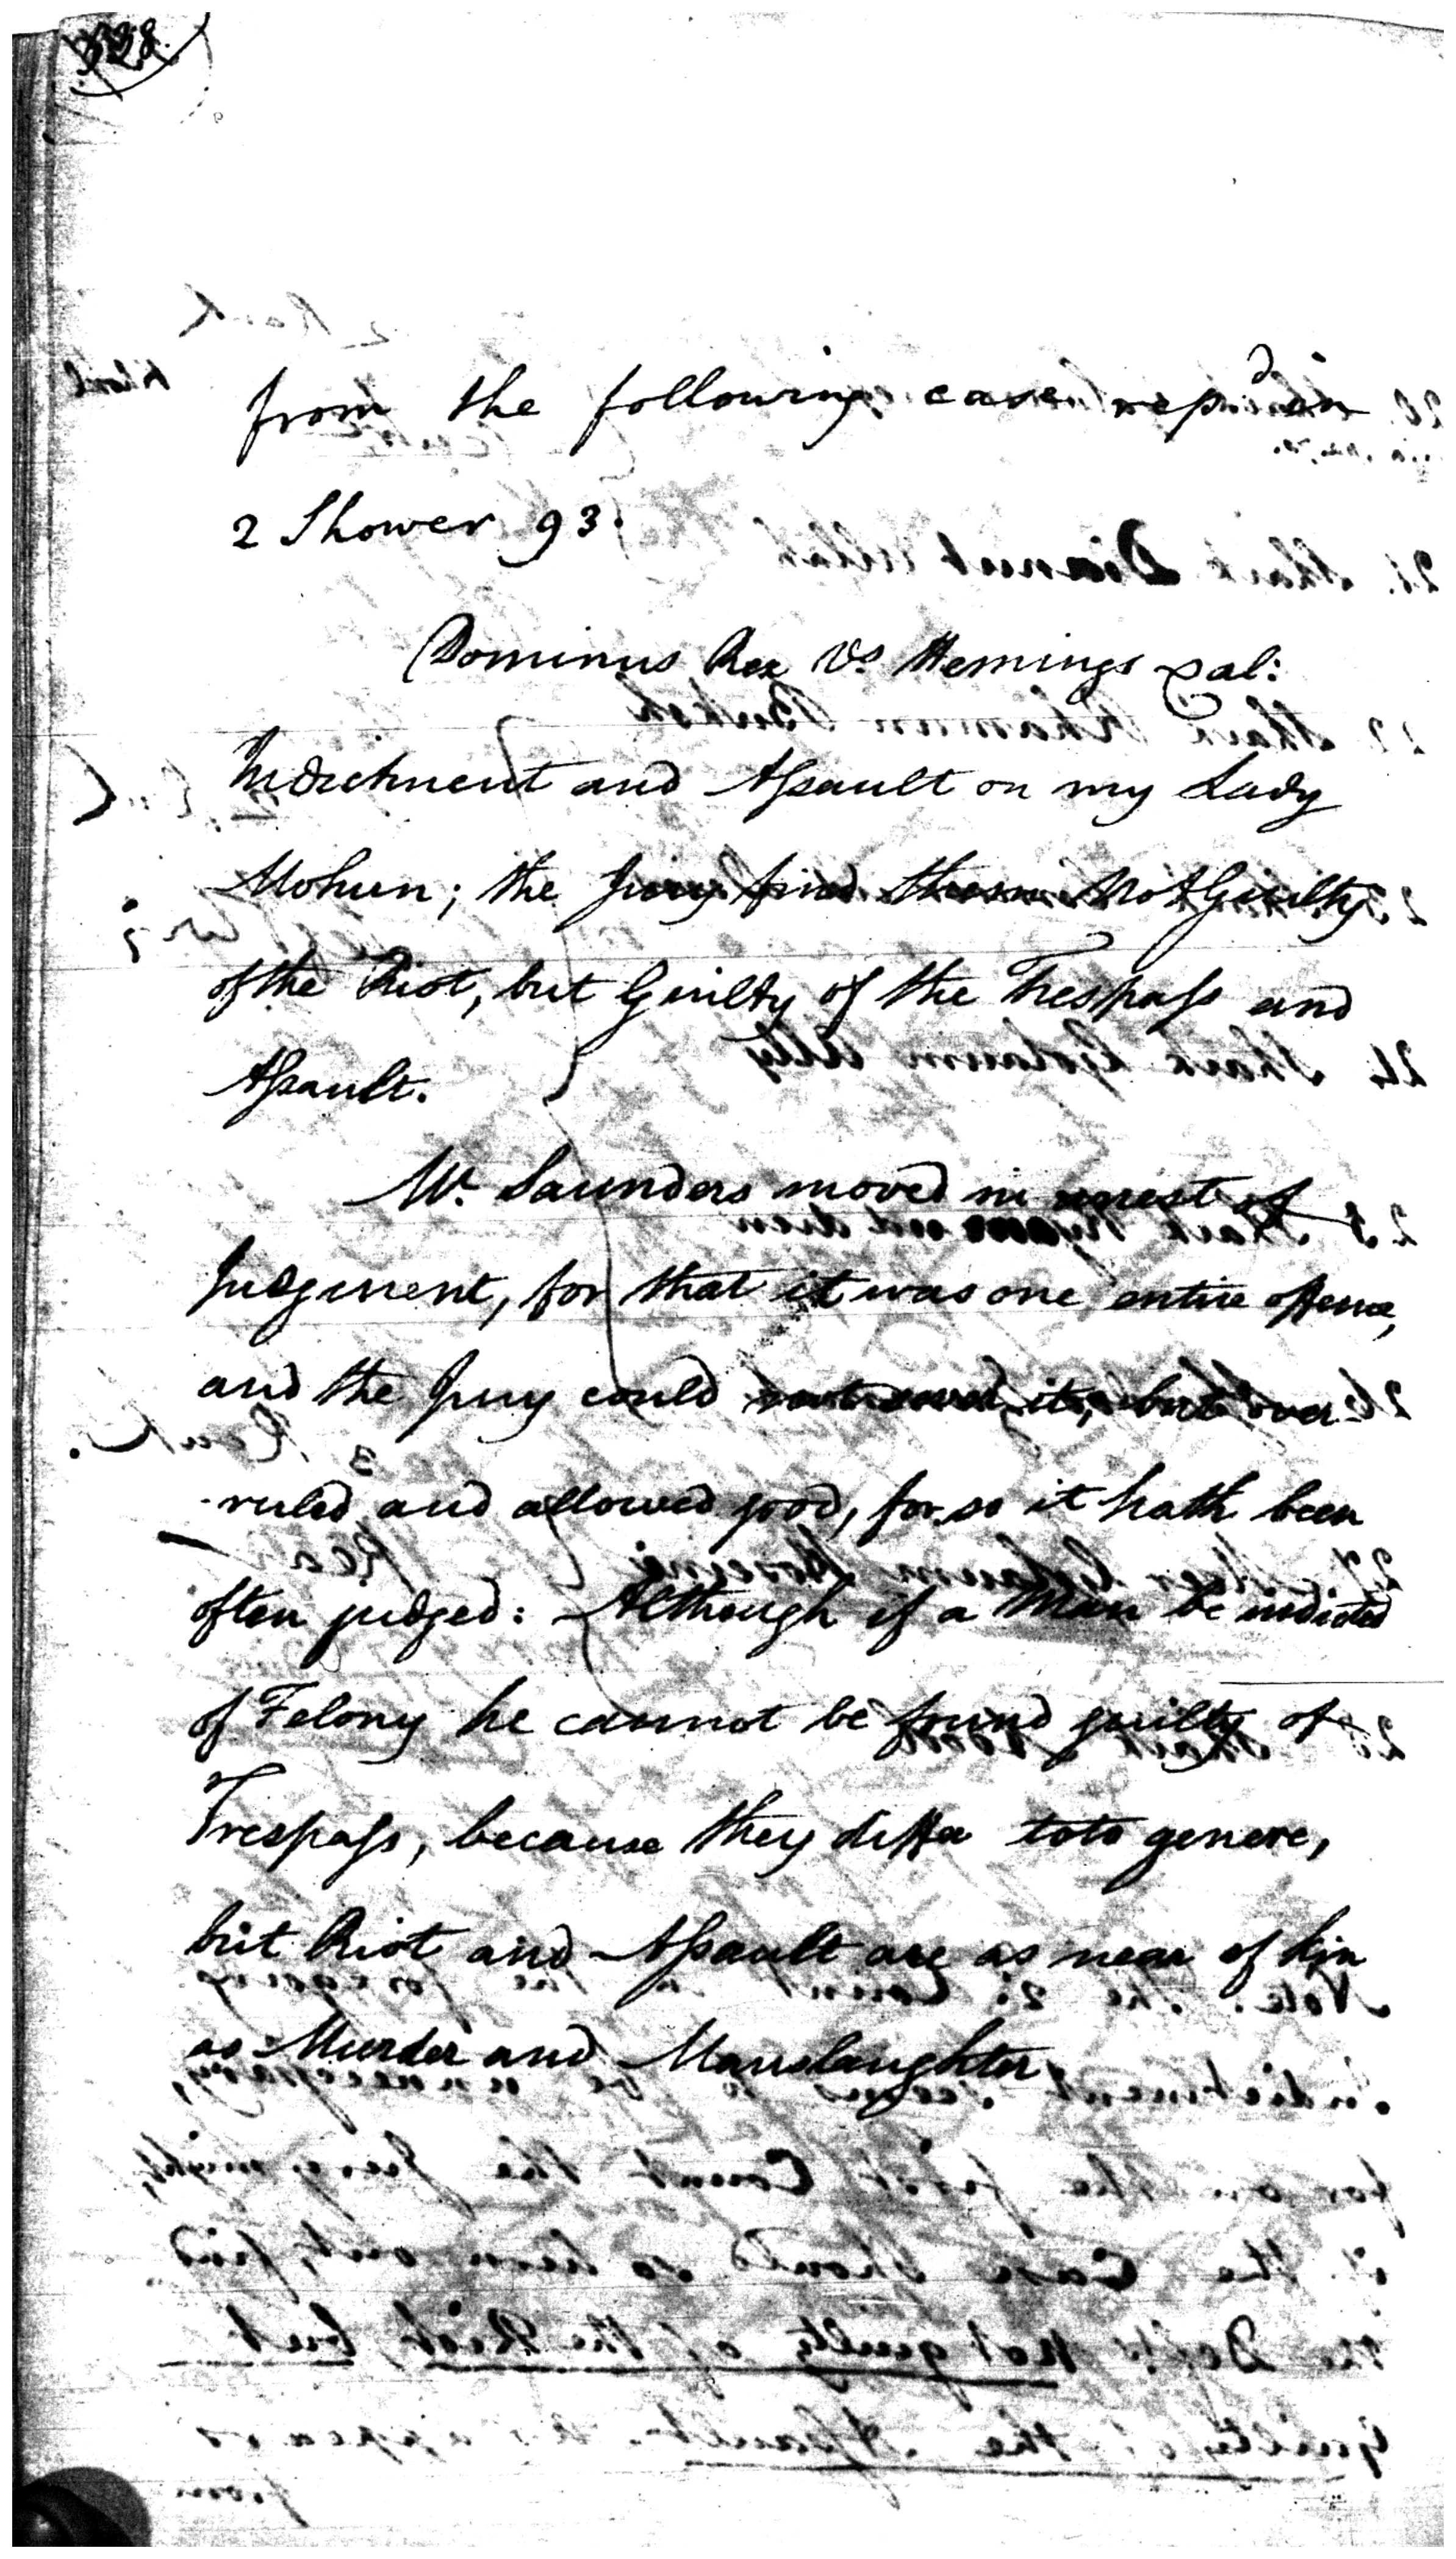 328.
from the following case rep.d in
2 Shower 93.
Dominus Rex Vs Hemings & al:
Indictment and Assault on my Lady
Mohun; the Jury find them Not Guilty
of the Riot, but Guilty of the Trespass and
Assault.
Mr. Saunders moved in arrest of
Judgment, for that it was one entire offence,
and the Jury could not sever it, but over
-ruled and allowed good, for so it hath been
often judged: Although if a Man be indicted
of Felony he cannot be found guilty of
Trespass, because they differ toto genere,
but Riot and Assault are as near of kin
as Murder and Manslaughter.